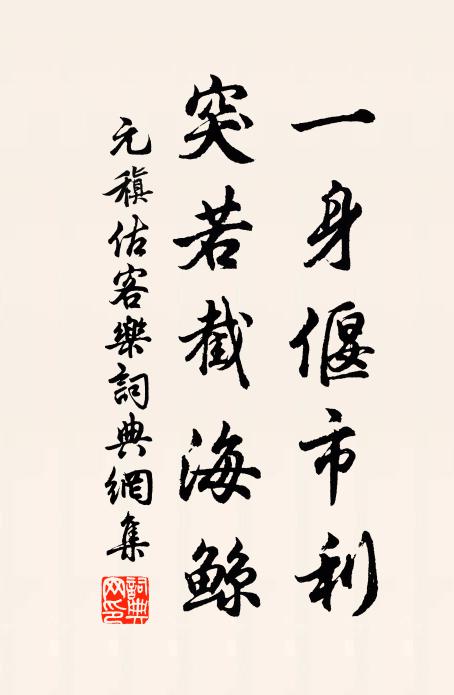 一身偃市利
突若截海鲸
元稹估客樂詞典網集
詞典網印